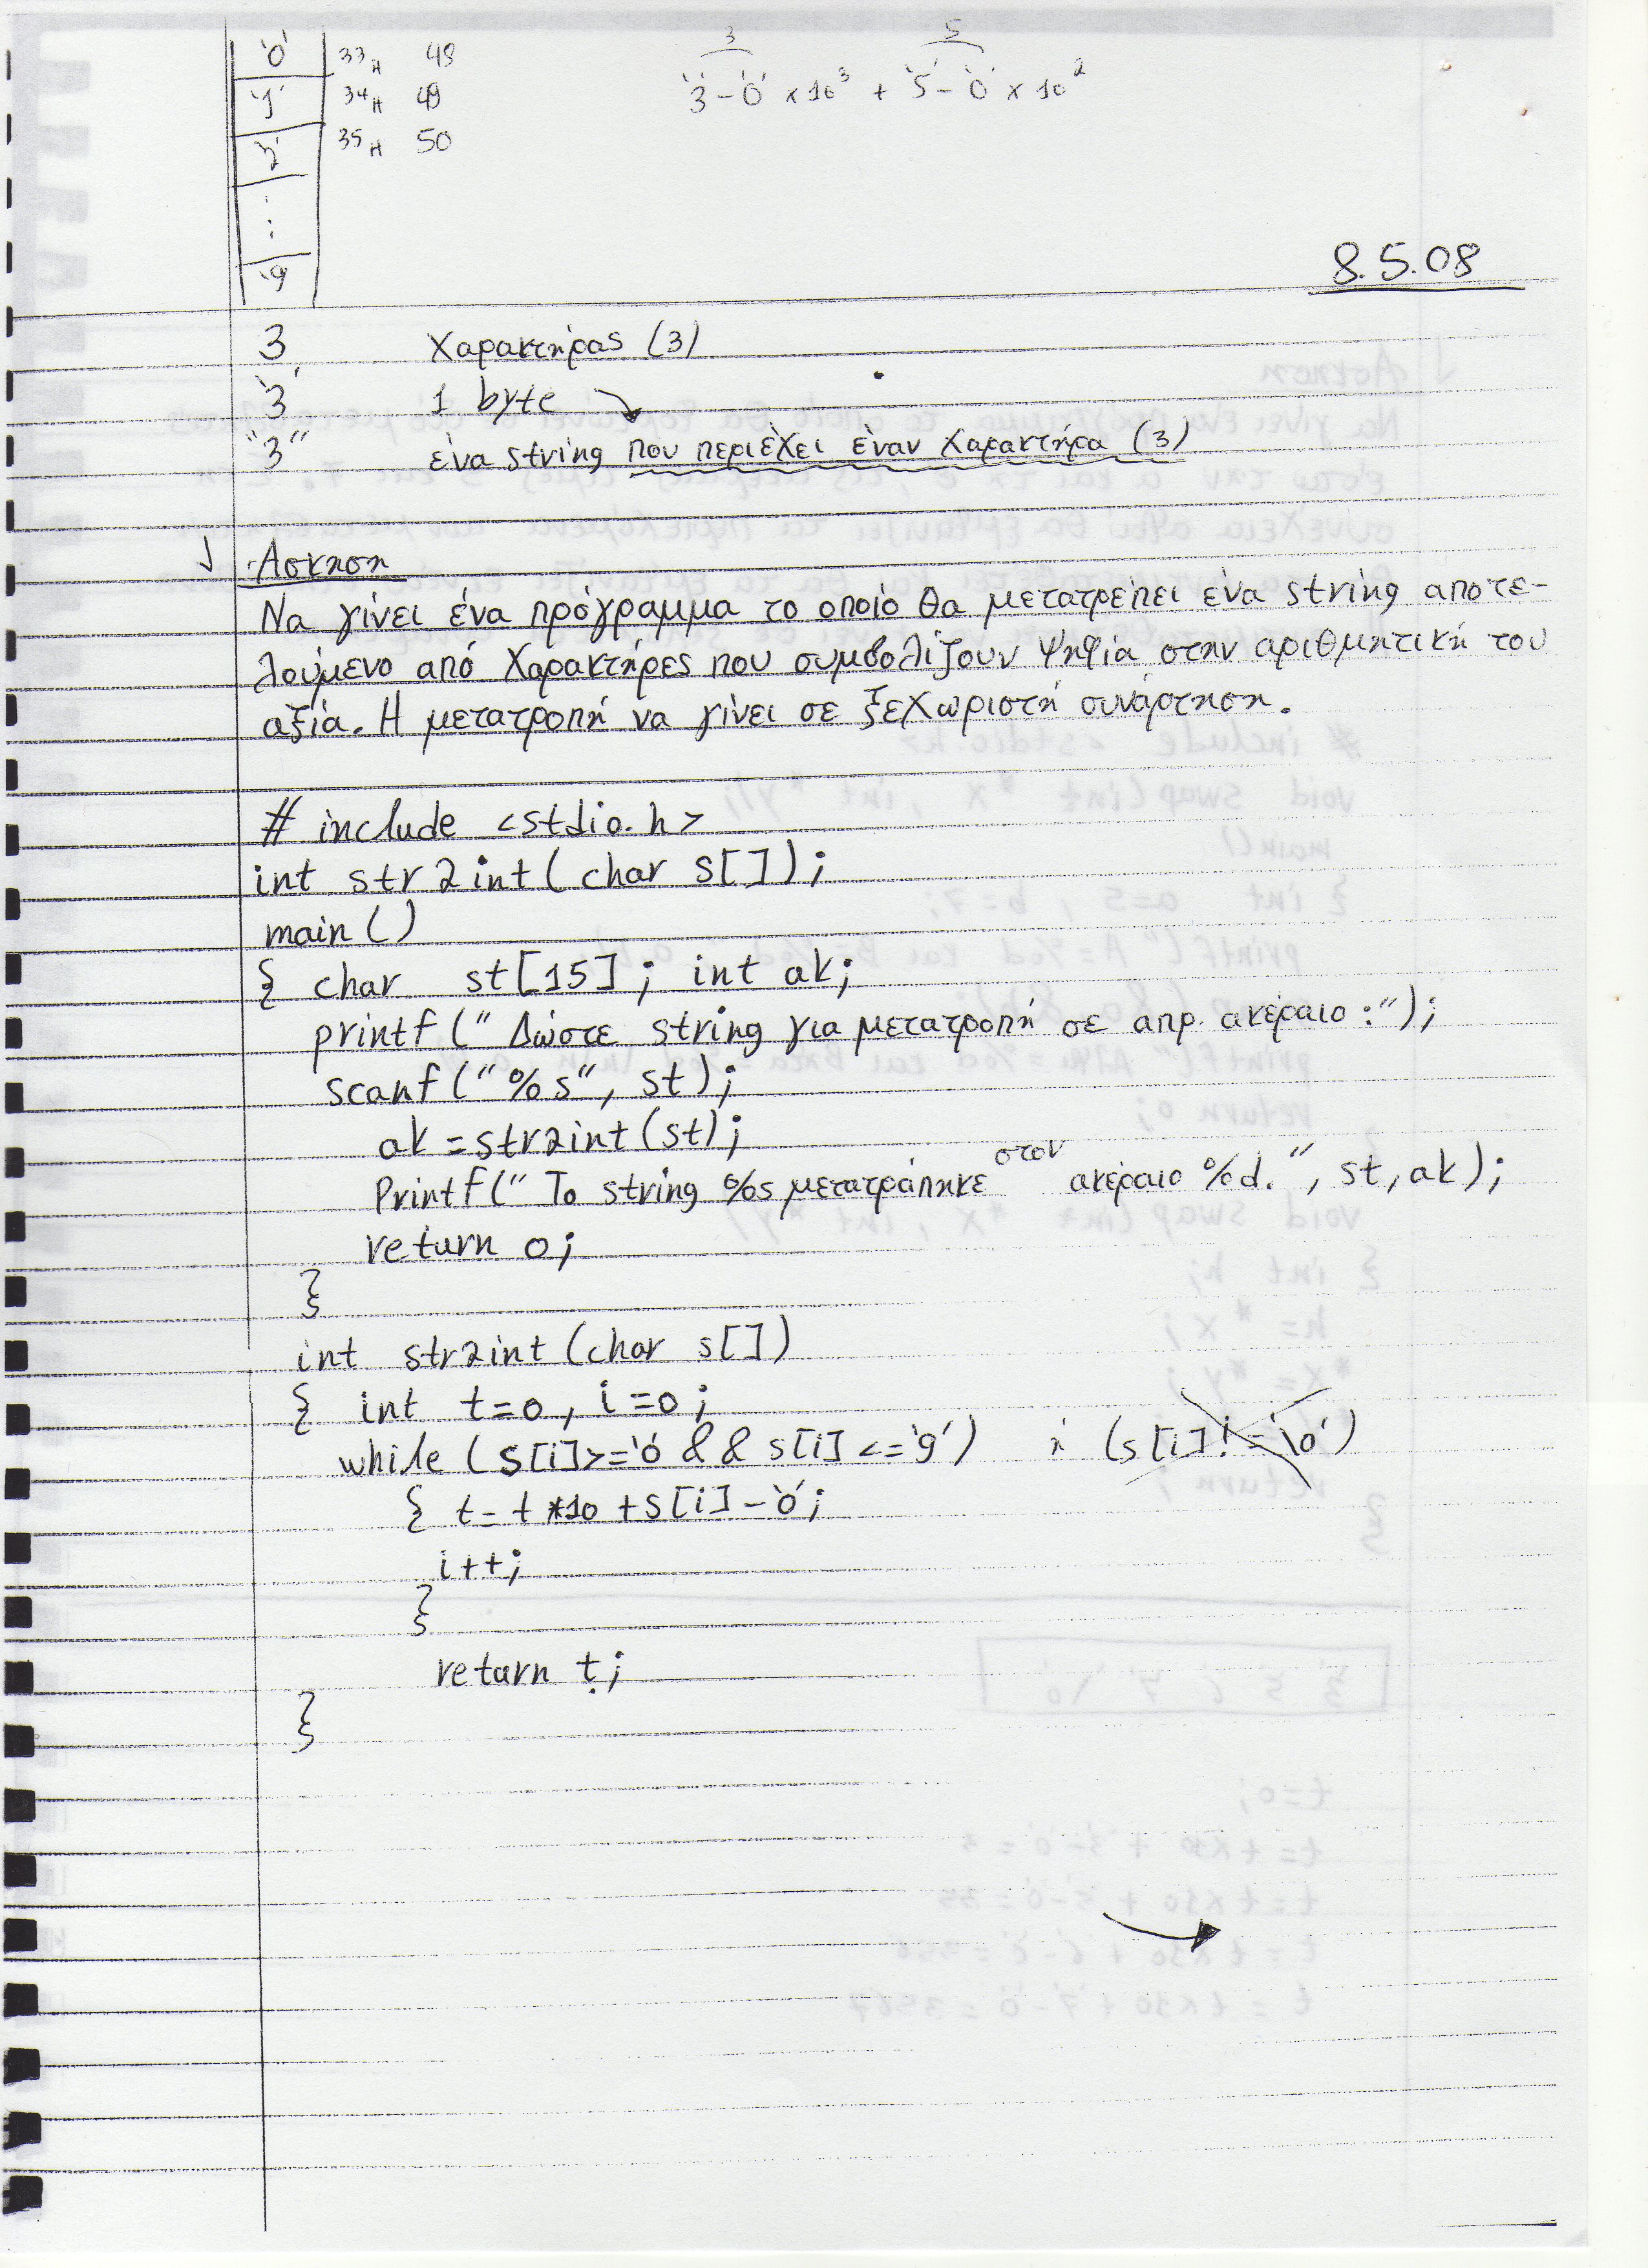 '0' 33H 48
'1' 34H 49
'2' 35H 50
⋮
'9'
3 5
'3'-'0' x 10³ + '5'-'0' x 10²
8.5.08
3 Χαρακτήρας (3)
'3' 1 byte
"3" ένα string που περιέχει έναν χαρακτήρα (3)
Άσκηση
Να γίνει ένα πρόγραμμα το οποίο θα μετατρέπει ένα string αποτε-
λούμενο από χαρακτήρες που συμβολίζουν ψηφία στην αριθμητική του
αξία. Η μετατροπή να γίνει σε ξεχωριστή συνάρτηση.
# include <stdio.h>
int str2int(char s[]);
main()
{ char st[15]; int ak;
printf(" Δώστε string για μετατροπή σε απρ. ακέραιο :");
scanf("%s", st);
ak = str2int(st);
Printf(" Το string %s μετατράπηκε στον ακέραιο %d.", st, ak);
return 0;
}
int str2int(char s[])
{ int t=0, i=0;
while (s[i]>='0' && s[i]<='9') ή (s[i]!='\0')
{ t= t*10 +s[i]-'0';
i++;
}
return t;
}